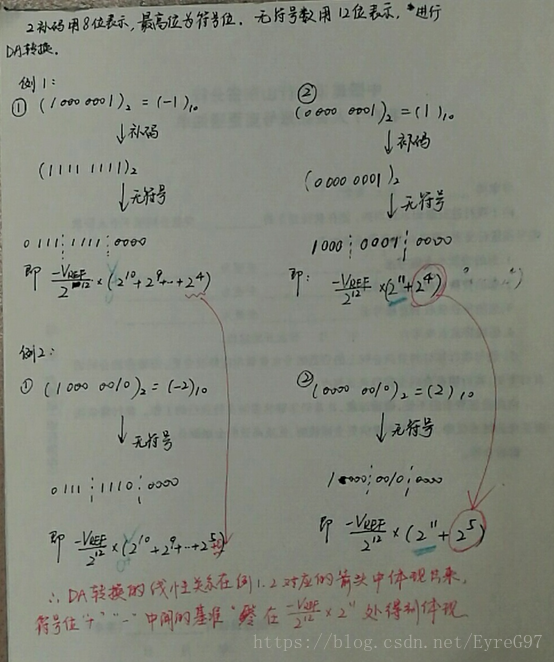 2补码用8位表示,最高位为符号位. 无符号数用12位表示,*进行
DA转换.
例1:
① (1000 0001)₂ = (-1)₁₀
↓补码
(1111 1111)₂
↓无符号
0111 1111 0000
即 -VREF/2¹² ×(2¹⁰+2⁹+…+2⁴)
② (0000 0001)₂ = (1)₁₀
↓补码
(0000 0001)₂
↓无符号
1000 0001 0000
即: -VREF/2¹² ×(2¹¹+2⁴)
例2:
① (1000 0010)₂ = (-2)₁₀
↓无符号
0111 1110 0000
即 -VREF/2¹² ×(2¹⁰+2⁹+…+2⁵)
② (0000 0010)₂ = (2)₁₀
↓无符号
1000 0010 0000
即 -VREF/2¹² ×(2¹¹+2⁵)
∴ DA转换的线性关系在例1.2对应的箭头中体现出来,
符号位"+" "-" 中间的基准 在 -VREF/2¹² ×2¹¹ 处得到体现
https://blog.csdn.net/EyreG97